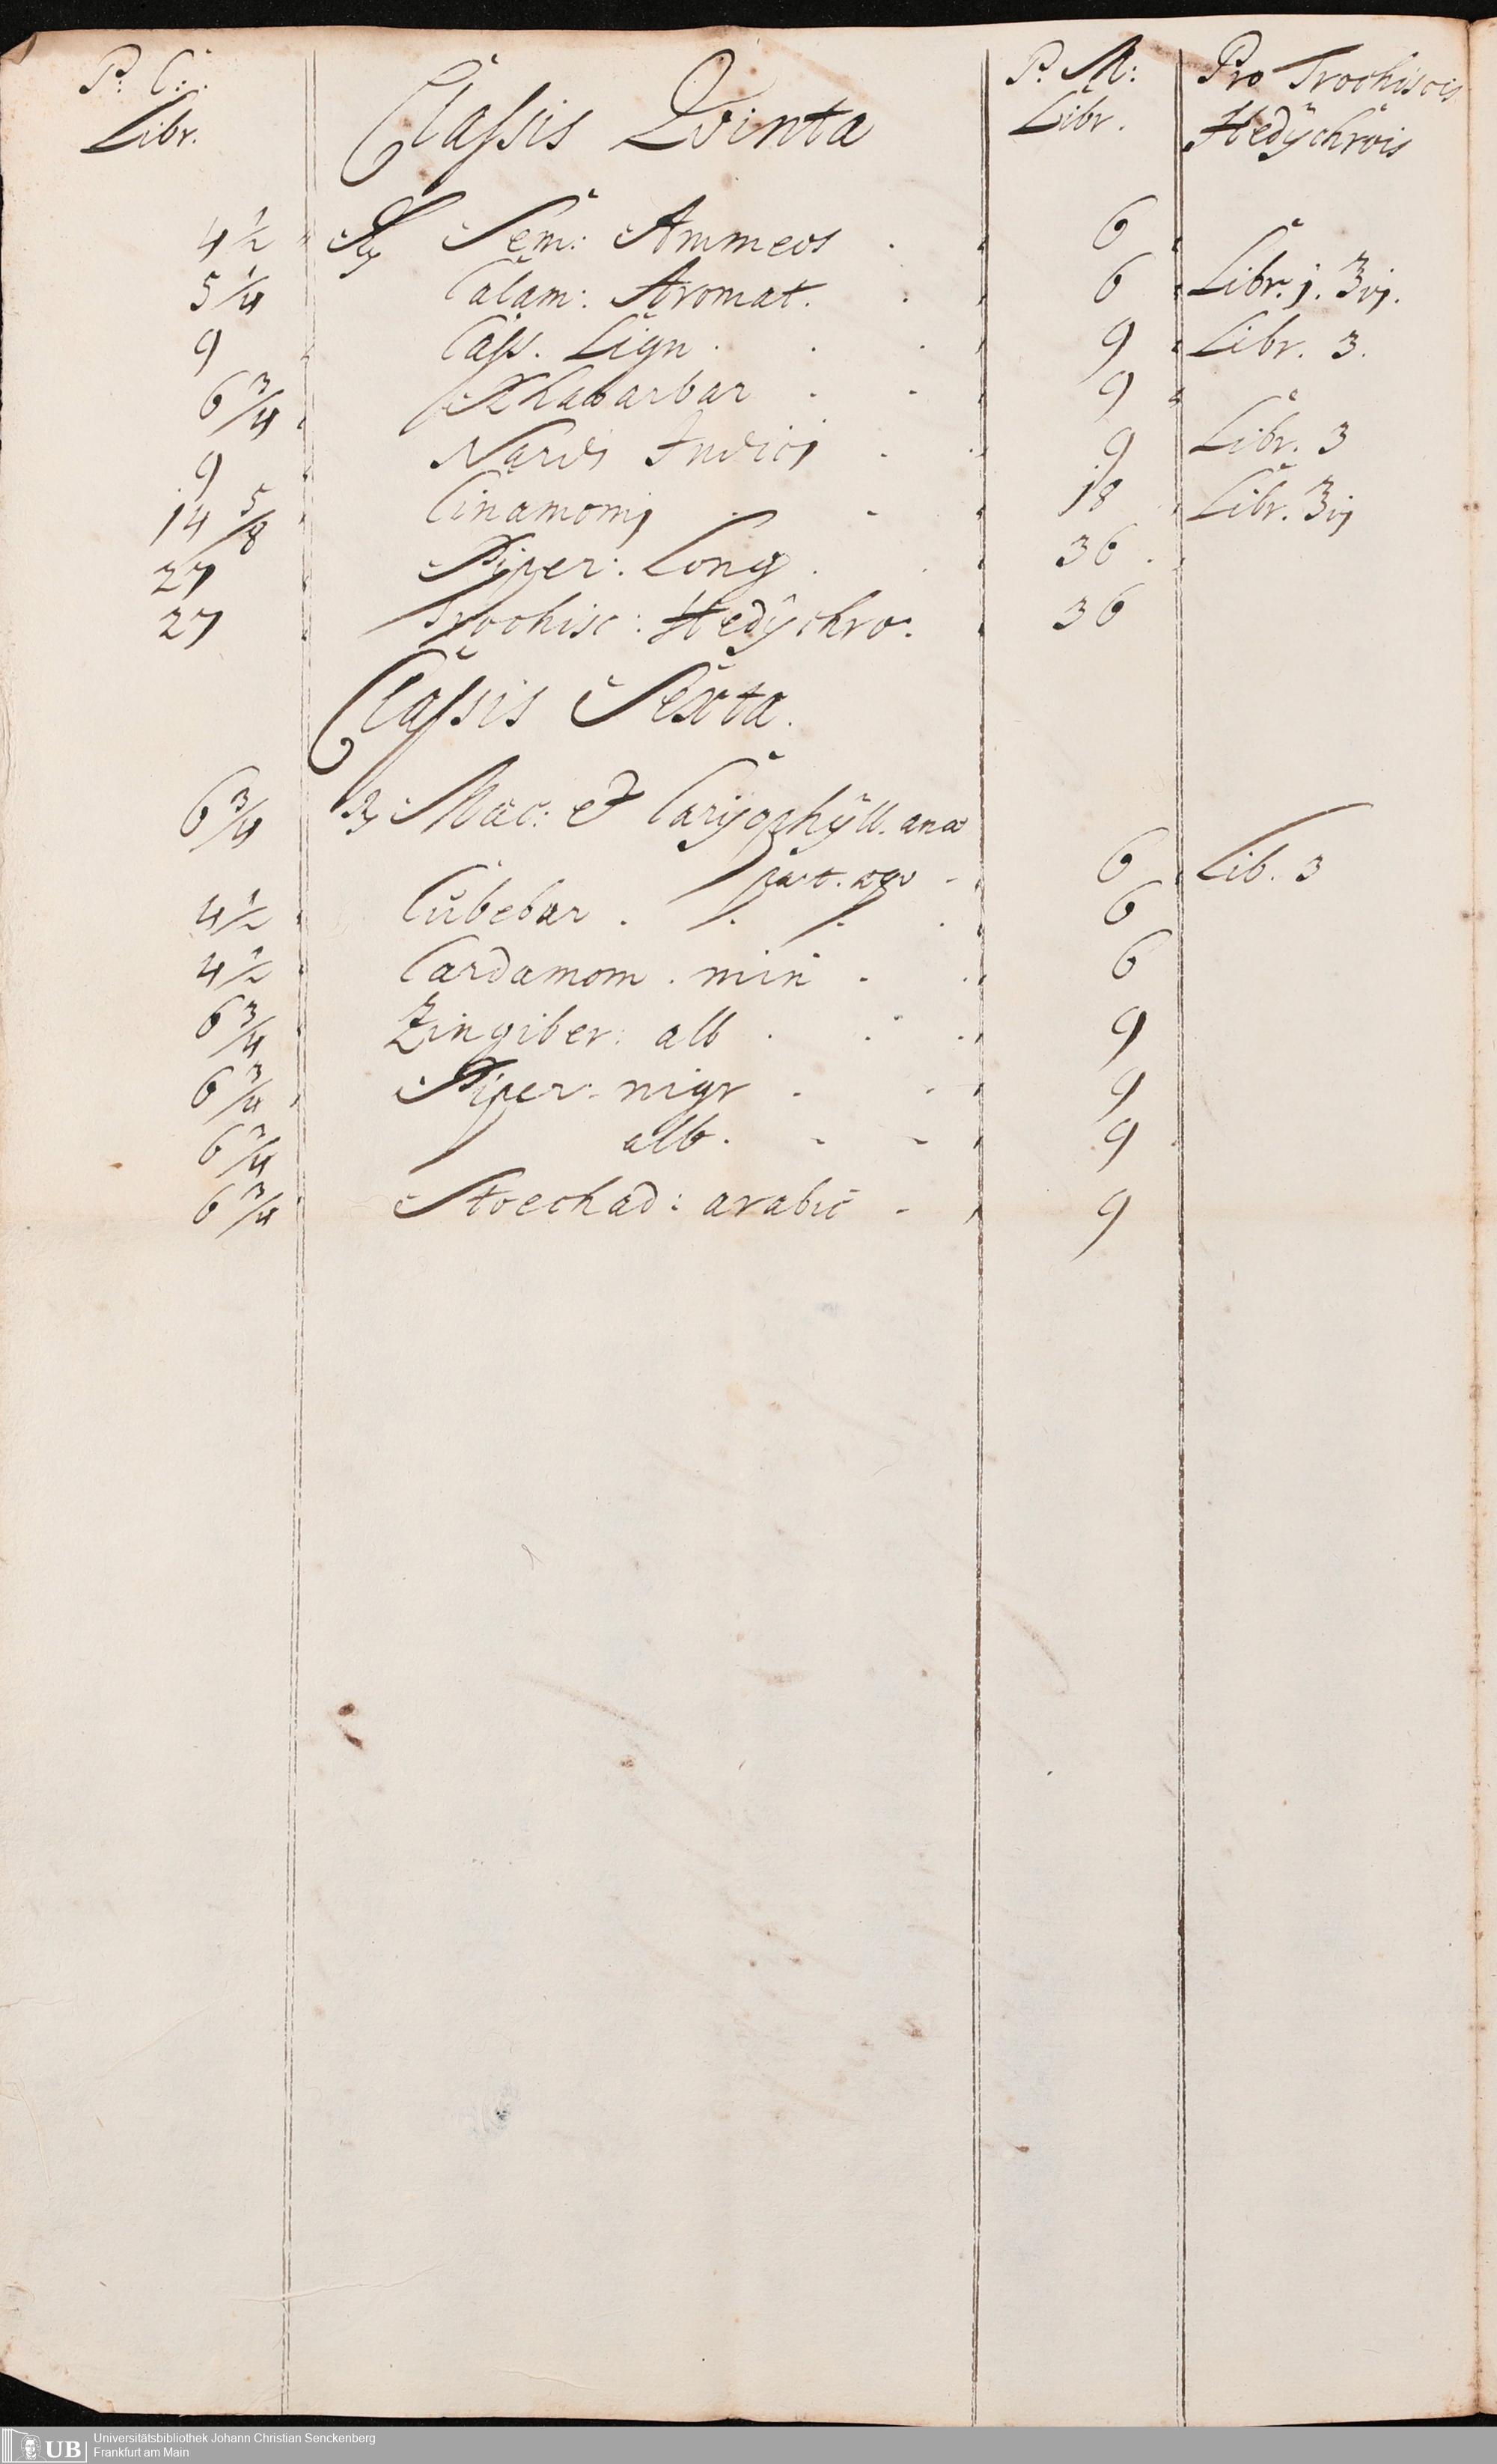 P. C:. Libr. Classis Qvinta P. M: Libr. Pro Trochiscis Hedÿchrois
4 1/2 ℞ Sem: Ammeos . 6
5 1/4 Calam: Aromat. . 6 Libr. j. ℥vj.
9 Cass. Lign . . . 9 Libr. 3.
6 3/4 Rhabarbar . - 9
9 Nardi Indici . . 9 Libr. 3
14 5/8 Cinamomj . - 18 Libr. ℥vj
27 Piper: Long . . 36 .
27 Trochisc: Hedÿchro: 36
Classis Sexta.
6 3/4 ℞ Mac: et Caryophÿll. ana
part. aeqv - 6 Lib. 3
4 1/2 Cubebar . . . . 6
4 1/2 Cardamom . min . . 6
6 3/4 Zingiber: alb . . . 9
6 3/4 Piper: nigr . - 9
6 3/4 alb. - - 9
6 3/4 Stoechad: arabic - 9
UB
Universitätsbibliothek Johann Christian Senckenberg
Frankfurt am Main